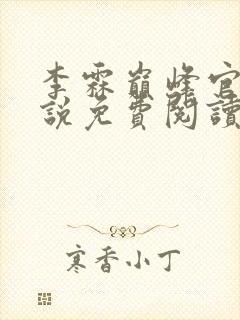 李霖巔峰官
說免費閱讀
寒香小丁